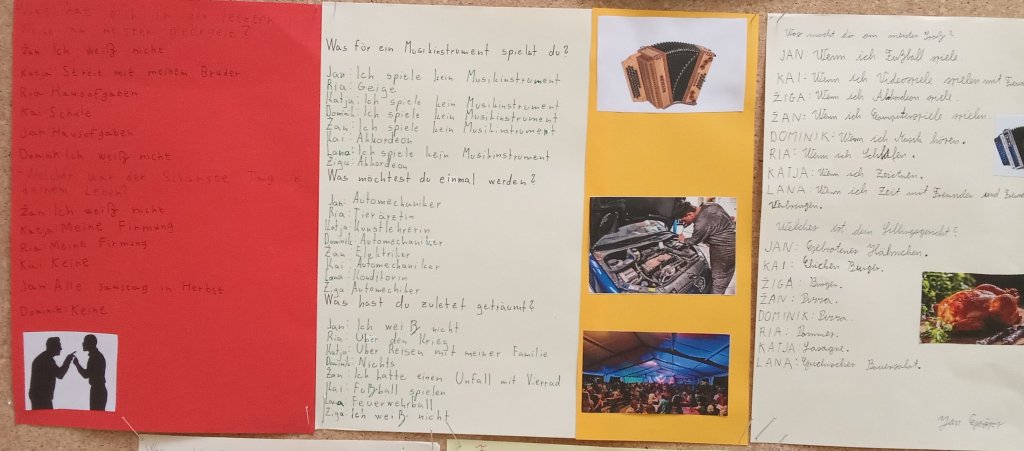 hat dich in der letzten
Woche am meisten geärgert?
Žan Ich weiß nicht
Katja Streit mit meinem Bruder
Ria Hausofgaben
Kai: Schule
Jan Hausofgaben
Dominik Ich weiß nicht
Welcher war der Schönste Tag in
deinem Leben?
Žan Ich weiß nicht
Katja Meine Firmung
Ria: Meine Firmung
Kai: Keine
Jan Alle samstag in Herbst
Dominik: Keine
Was für ein Musikinstrument spielst du?
Jan: Ich spiele kein Musikinstrument
Ria: Geige
Katja: Ich spiele kein Musikinstrument
Dominik: Ich spiele kein Musikinstrument
Žan: Ich spiele kein Musikinstrument
Kai: Akkordeon
Lana: Ich spiele kein Musikinstrument
Žiga: Akkordeon
Was möchtest du einmal werden?
Jan: Automechaniker
Ria: Tierärztin
Katja: Kunstlehrerin
Dominik: Automechaniker
Žan: Elektriker
Kai: Automechaniker
Lana: Konditorin
Žiga Automechiker
Was hast du zuletzt geträumt?
Jan: Ich weiß nicht
Ria: Über den Krieg
Katja: Über Reisen mit meiner Familie
Dominik: Nichts
Žan: Ich hatte einen Unfall mit Vierrad
Kai: Fußball spielen
Lana: Feuerwehrball
Žiga: Ich weiß nicht
Was macht dir am meisten
JAN: Wenn ich Fußball spiele
KAI: Wenn ich Videospiele spielen mit
ŽIGA: Wenn ich Akkordeon spiele.
ŽAN: Wenn ich Computerspiele spielen.
DOMINIK: Wenn ich Musik hören.
RIA: Wenn ich Schlafen.
KATJA: Wenn ich Zeichnen.
LANA: Wenn ich Zeit mit Freunden und
Verbringen.
Welches ist dein Lieblingsgericht?
JAN: Gebratenes Hähnchen.
KAI: Chicken Burger.
ŽIGA: Burger.
ŽAN: Pizza.
DOMINIK: Pizza.
RIA: Pommes.
KATJA: Lasagne.
LANA: Griechischer Bauersalat.
Jan